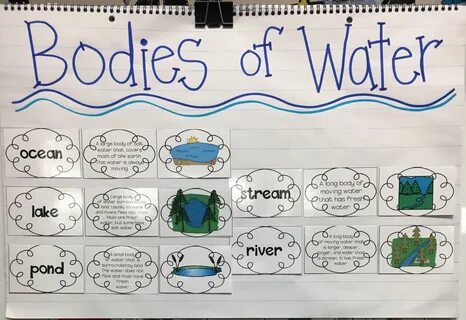 Bodies of Water
ocean
A large body of salt
water that covers
most of the earth.
The water is always
moving.
lake
Large body
of water surrounded by
land. Usually streams
and rivers feed into them.
Most are fresh
water, but some have
salt water.
pond
A small body
of water that is
surrounded by land.
The water does not
flow and most have
fresh
water.
stream
A long body of
moving water
that has fresh
water
river
A long body
of moving water that
is larger, deeper,
longer, and wider than
a stream. It has fresh
water.